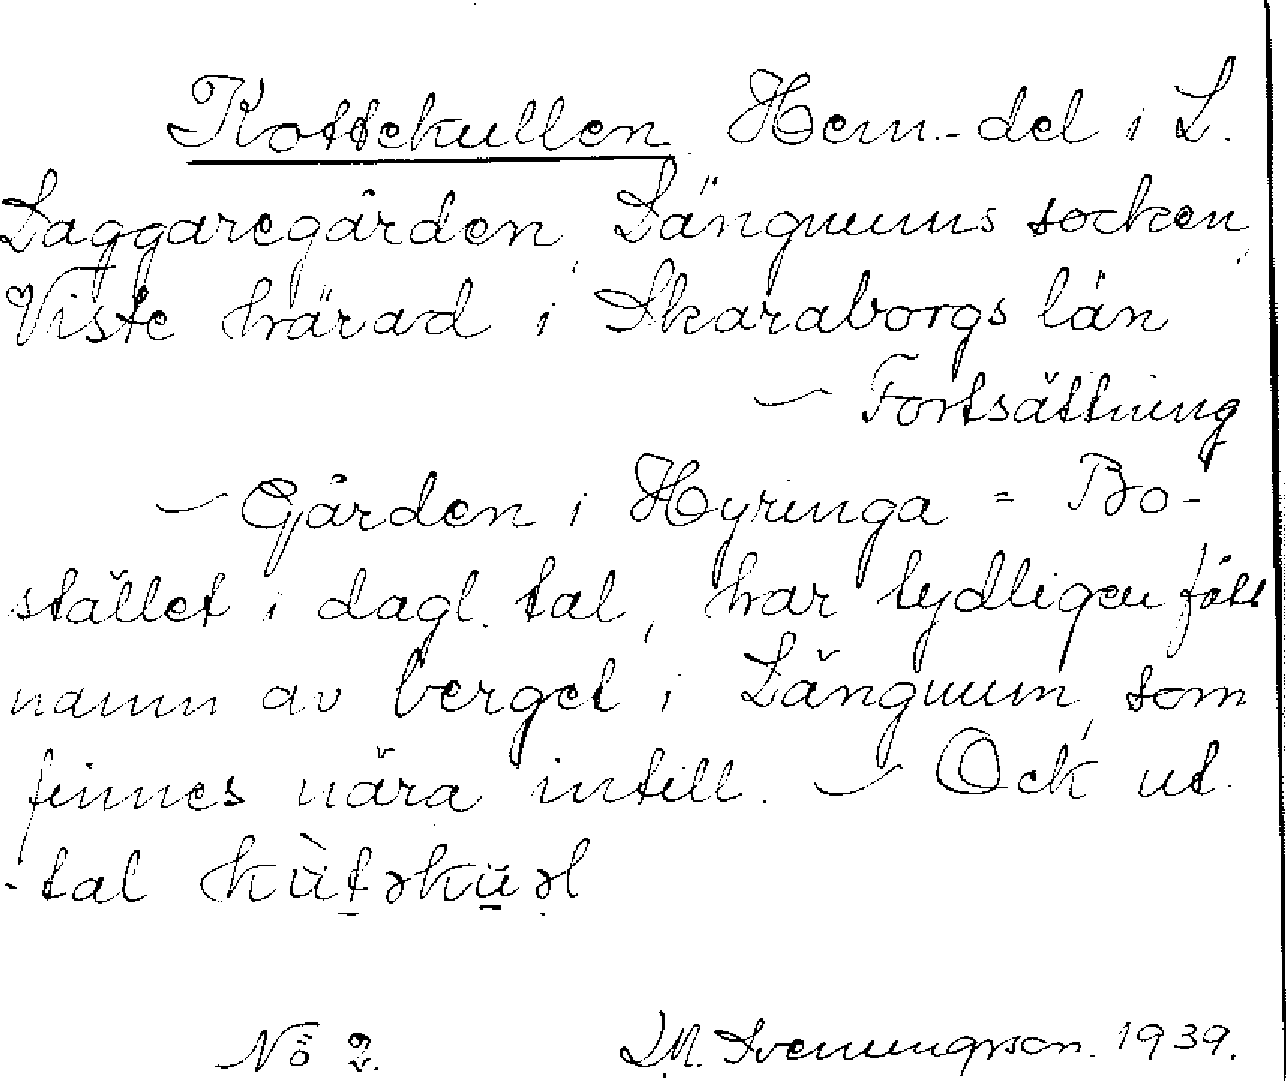 Kottekullen. Hem.-del i L.
Laggaregården, Längnums socken,
Viste härad i Skaraborgs län
– Fortsättning
– Gården i Hyringa = Bo-
stället i dagl. tal, har tydligen fått
namn av berget i Längnum, som
finnes nära intill. – Ock ut.
-tal
No 2. I.M. Svenungsson. 1939.